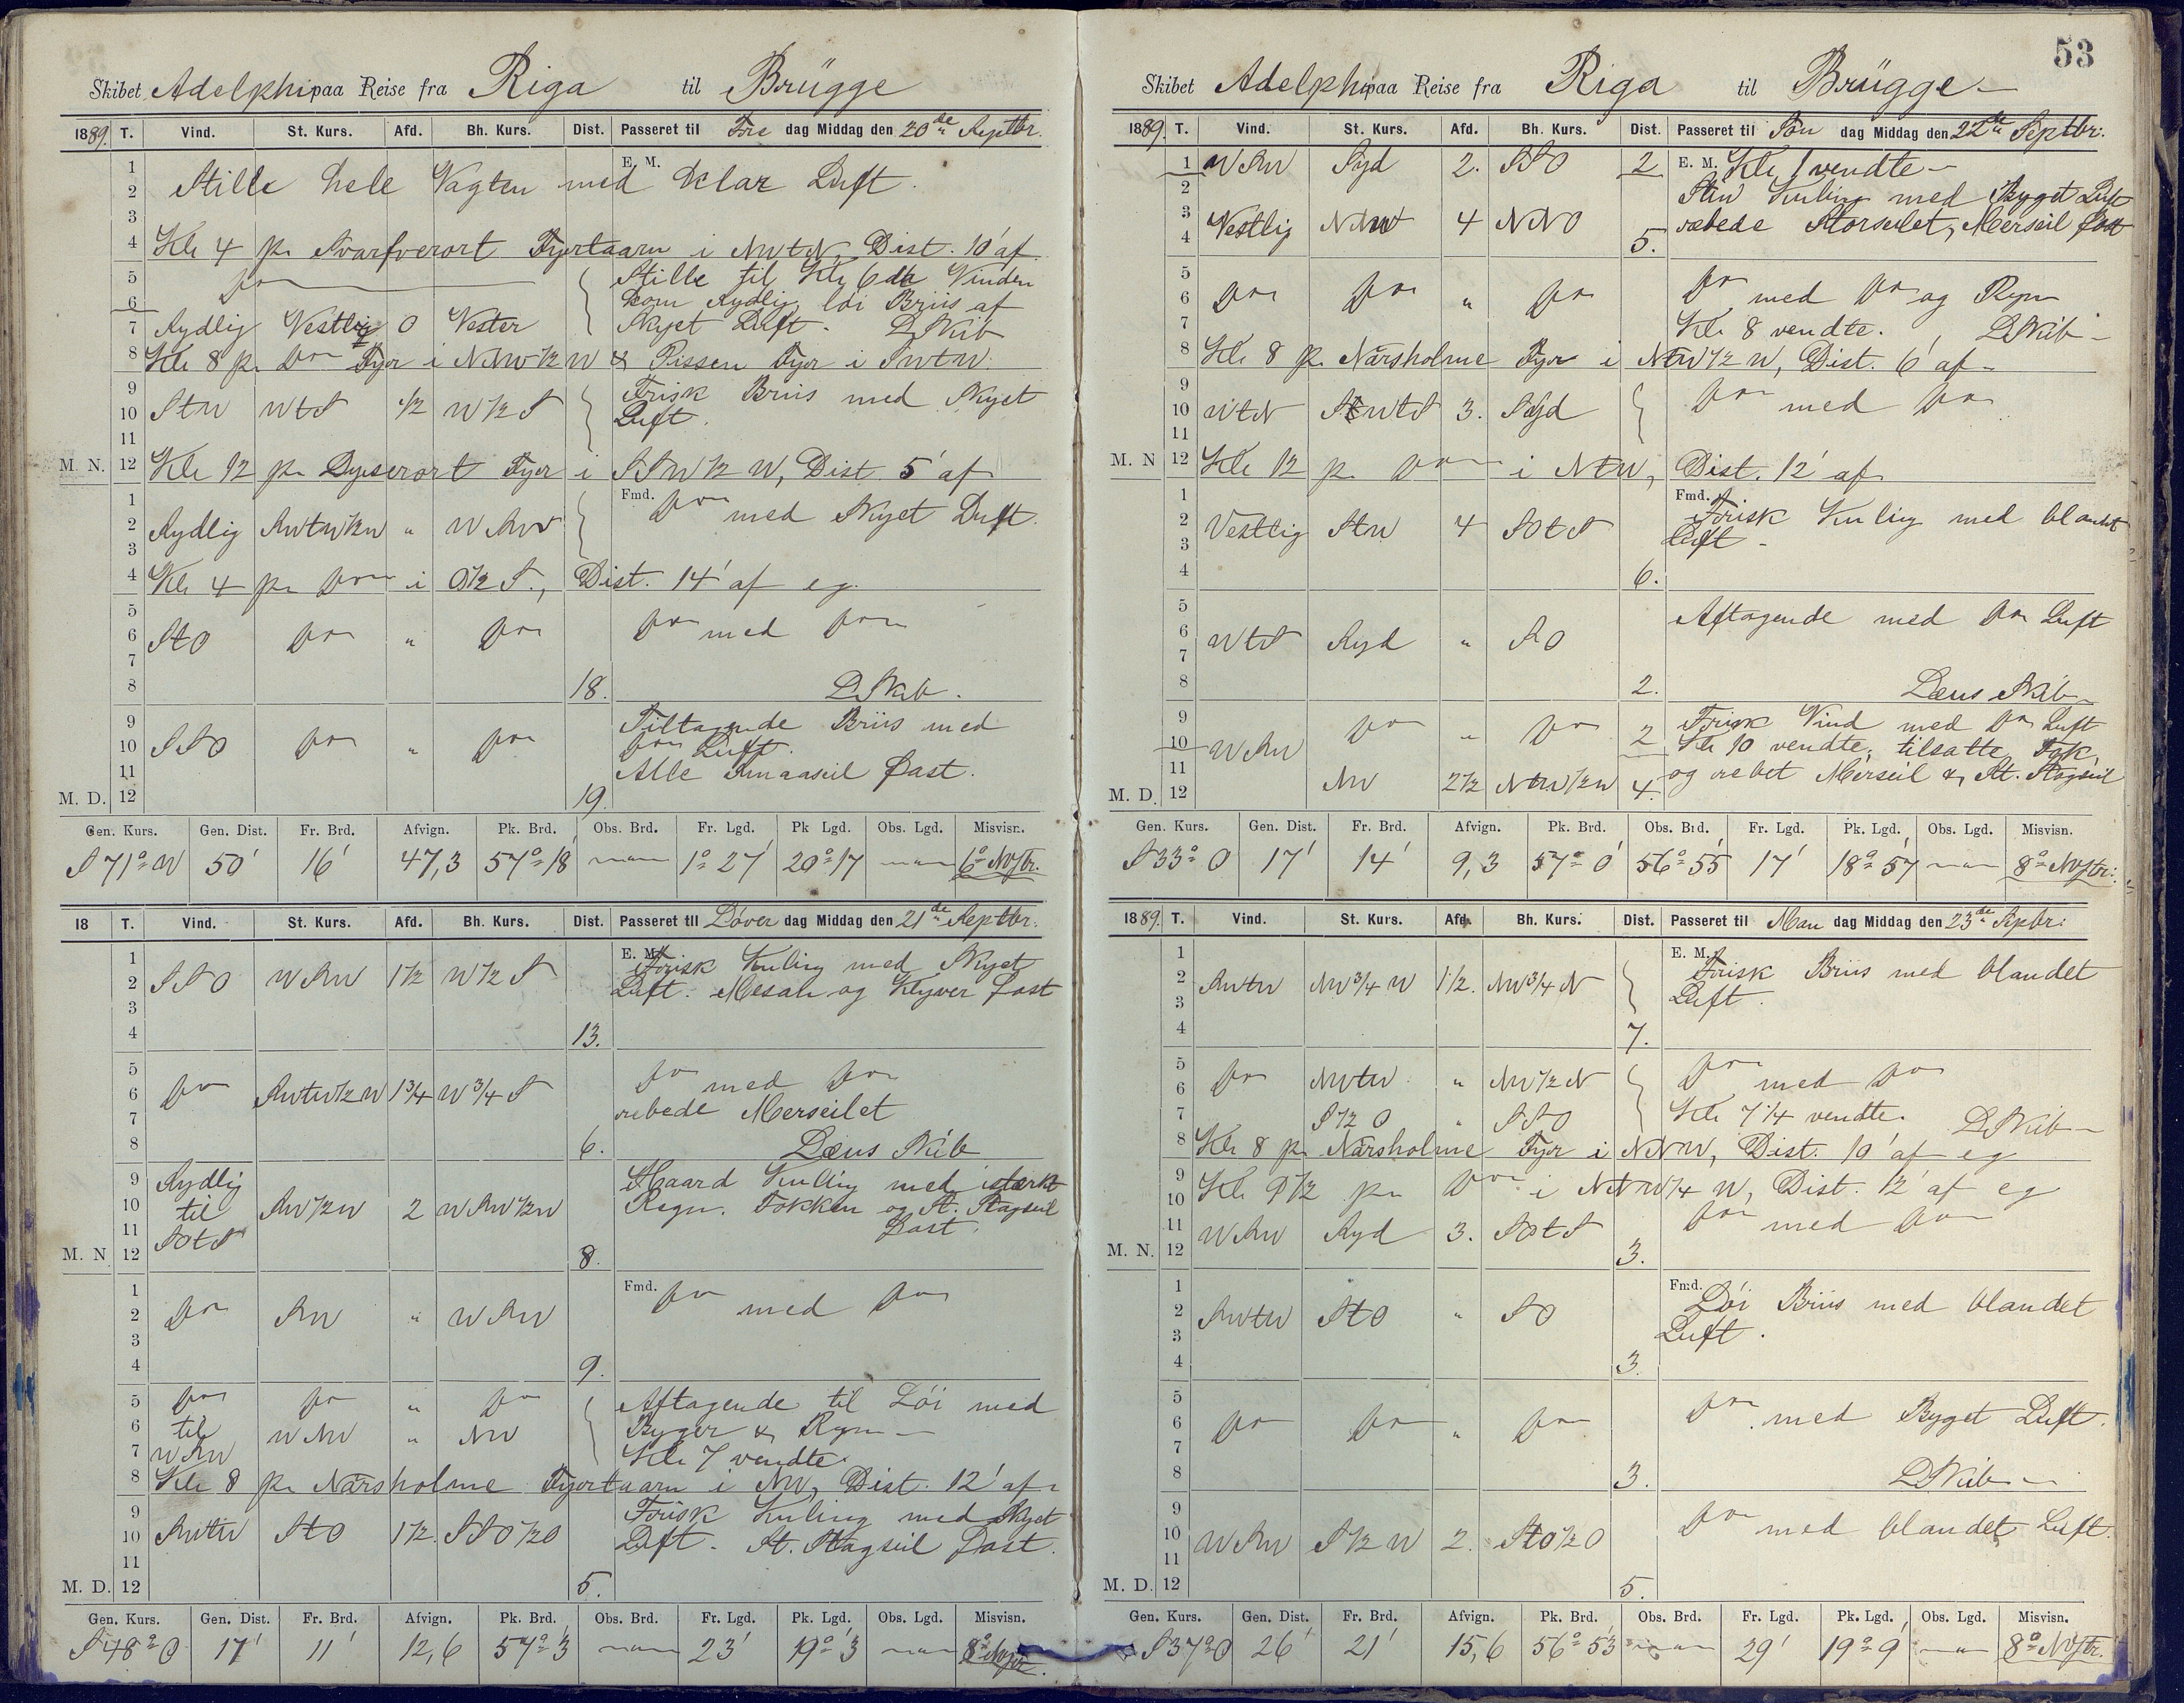 Skibet Adelphi paa Reise fra Riga til Brügge
1889. T. Vind. St. Kurs. Afd. Bh. Kurs. Dist. Passeret til Fre dag Middag den 20de Septbr.
1 E. M.
2 Stille hele Vagten med klar Luft.
3
4 Kl. 4 p. Svarfverort Fyrtaarn i NWtN, Dist. 10' af.
5 do Stille til Kl. 6 da Vinden
6 kom Sydlig, löi Briis af
7 Sydlig Vestlig 0 Vester Skyet Luft. L. Skib
8 Kl. 8 p. do Fyr i NNW½W & Pissen Fyr i SWtW.
9 Frisk Briis med Skyet
10 StW WtS ½ W½S Luft.
11
M. N. 12 Kl. 12 p. Lyserort Fyr i SSW½W, Dist. 5' af
1 Fmd. do med Skyet Luft.
2 Sydlig SWtW½W " WSW
3
4 Kl. 4 p. do i O½S., Dist. 14' af eg.
5
6 StO do " do do med do
7
8 18. L. Skib.
9 Tiltagende Briis med
10 SSO do " do do Luft.
11 Alle Smaaseil fast.
M. D. 12 19.
Gen. Kurs. Gen. Dist. Fr. Brd. Afvign. Pk. Brd. Obs. Brd. Fr. Lgd. Pk Lgd. Obs. Lgd. Misvisn.
S 71° W 50' 16' 47,3 57° 18' 1° 27' 20° 17 6° NVstr.
18 T. Vind. St. Kurs. Afd. Bh. Kurs. Dist. Passeret til Löver dag Middag den 21de Septbr.
1 E. M. Frisk Kuling med Skyet
2 SSO WSW 1½ W½S Luft. Mesan og Klyver fast
3
4 13.
5 do med do
6 do SWtW½W 1¾ W¾S
7 rebede Merseilet
8 6. Læns Skib
9 Sydlig Haard Kuling med stærk
10 til SW½W 2 WSW½W Regn. Fokken og St. Stagseil
11 SOtS fast.
M. N. 12 8.
1 Fmd. do med do
2 do SW " WSW
3
4 9.
5 do do " do Aftagende til Löi med
6 til WNW " NW Byger & Regn
7 WSW Kl. 7 vendte.
8 Kl. 8 p. Närsholme Fyrtaarn i NW, Dist. 12' af
9 Frisk Kuling med Skyet
10 SWtW StO 1½. SSO½O Luft. St. Stagseil fast.
11
M. D. 12 5.
Gen. Kurs. Gen. Dist. Fr. Brd. Afvign. Pk. Brd. Obs. Brd. Fr. Lgd. Pk. Lgd. Obs. Lgd. Misvisn.
S 48° O 17' 11' 12,6 57° 3' 23' 19° 3' 8° NVstr.
53
Skibet Adelphi paa Reise fra Riga til Brügge
1889. T. Vind. St. Kurs. Afd. Bh. Kurs. Dist. Passeret til Søn dag Middag den 22de Septbr.
1 WSW Syd 2. SSO 2 E. M. Kl. 1 vendte
2 Stiv Kuling med Byget Luft
3 Vestlig NNW 4 NNO rebede Storseilet, Merseil fast
4 5.
5 do med do og Regn
6 do do " do
7 Kl. 8 vendte. L. Skib
8 Kl. 8 p. Närsholme Fyr i NtW½W, Dist. 6' af
9
10 WtN SWtS 3. Syd do med do
11
M. N 12 Kl. 12 p. do i NtW, Dist. 12' af
1 Fmd. Frisk Kuling med blandet
2 Vestlig StW 4 SOtS Luft
3
4 6.
5 Aftagende med do Luft
6 WtS Syd " SO
7
8 2. Læns Skib
9 do " do 2 Frisk Vind med do Luft
10 WSW Kl. 10 vendte, tilsatte Fok,
11 NW 2½ NtW½W 4. og rebet Merseil & St. Stagseil
M. D. 12
Gen. Kurs. Gen. Dist. Fr. Brd. Afvign. Pk. Brd. Obs. Brd. Fr. Lgd. Pk. Lgd. Obs. Lgd. Misvisn.
S 33° O 17' 14' 9,3 57° 0' 56° 55' 17' 18° 57' 8° NVstr.
1889. T. Vind. St. Kurs. Afd. Bh. Kurs. Dist. Passeret til Man dag Middag den 23de Septbr.
1 E. M. Frisk Briis med blandet
2 SWtW NW¾W 1½. NW¾N Luft.
3
4 7.
5 do med do
6 do NWtW " NW½N
7 S½O " SSO Kl. 7¼ vendte. L. Skib
8 Kl. 8 p. Närsholme Fyr i NNW, Dist. 10' af eg
9 Kl. 9½ p. do i NNW¼W, Dist. 12' af eg
10
11 WSW Syd 3. SOtS do med do
M. N. 12 3.
1 Fmd. Löi Briis med blandet
2 SWtW StO " SO Luft.
3
4 3.
5 do med Byget Luft.
6 do do " do
7
8 3. L. Skib
9
10 WSW S½W 2. StO½O do med blandet Luft.
11
M. D. 12 5.
Gen. Kurs. Gen. Dist. Fr. Brd. Afvign. Pk. Brd. Obs. Brd. Fr. Lgd. Pk. Lgd. Obs. Lgd. Misvisn.
S 37° O 26' 21' 15,6 56° 53' 29' 19° 9' 8° NVstr.